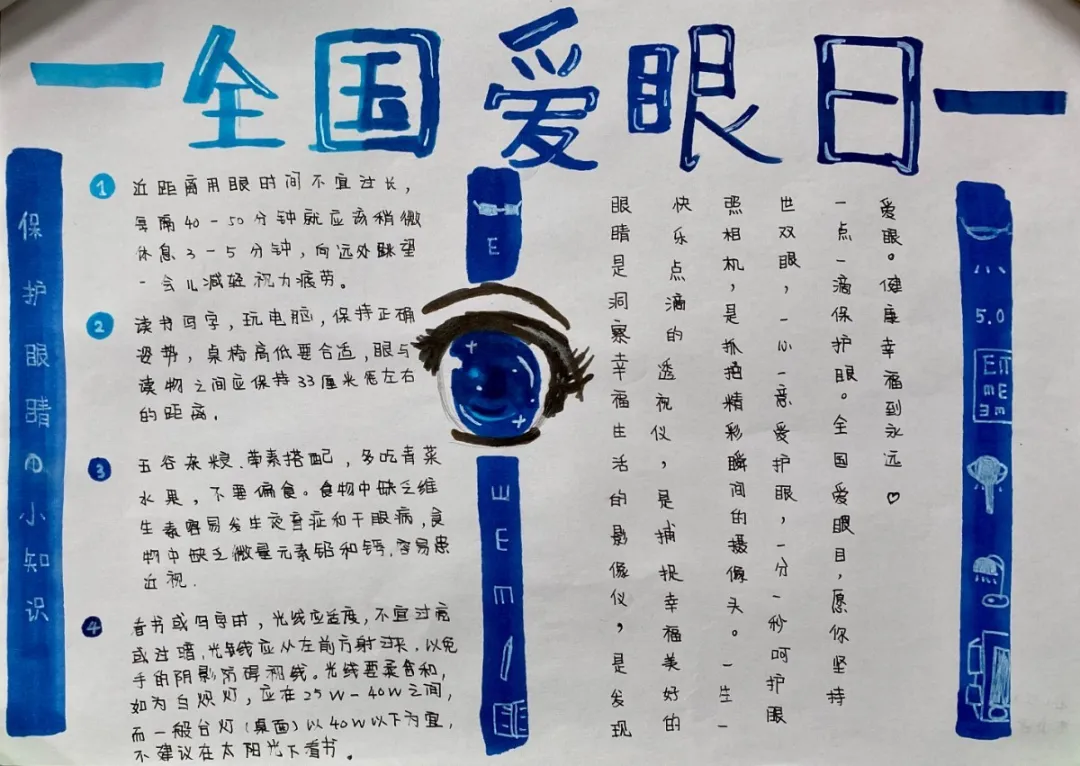 全国爱眼日
保护眼睛的小知识
1
近距离用眼时间不宜过长，
每隔40-50分钟就应该稍微
休息3-5分钟，向远处眺望
一会儿减轻视力疲劳。
2
读书写字，玩电脑，保持正确
姿势，桌椅高低要合适，眼与
读物之间应保持33厘米左右
的距离。
3
五谷杂粮、荤素搭配，多吃青菜
水果，不要偏食。食物中缺乏维
生素容易发生夜盲症和干眼病，食
物中缺乏微量元素铬和钙，容易患
近视.
4
看书或写字时，光线应适度，不宜过亮
或过暗，光线应从左前方射过来，以免
手的阴影妨碍视线。光线要柔合和，
如为白炽灯，应在25W-40W之间，
而一般台灯(桌面)以40W以下为宜，
不建议在太阳光下看书。
E
E
眼睛是洞察幸福生活的影像仪，是发现
快乐点滴的透视仪，是捕捉幸福美好的
照相机，是抓拍精彩瞬间的摄像头。一生一
世双眼，一心一意爱护眼，一分一秒呵护眼
一点一滴保护眼。全国爱眼日，愿你坚持
爱眼。健康幸福到永远♡
5.0